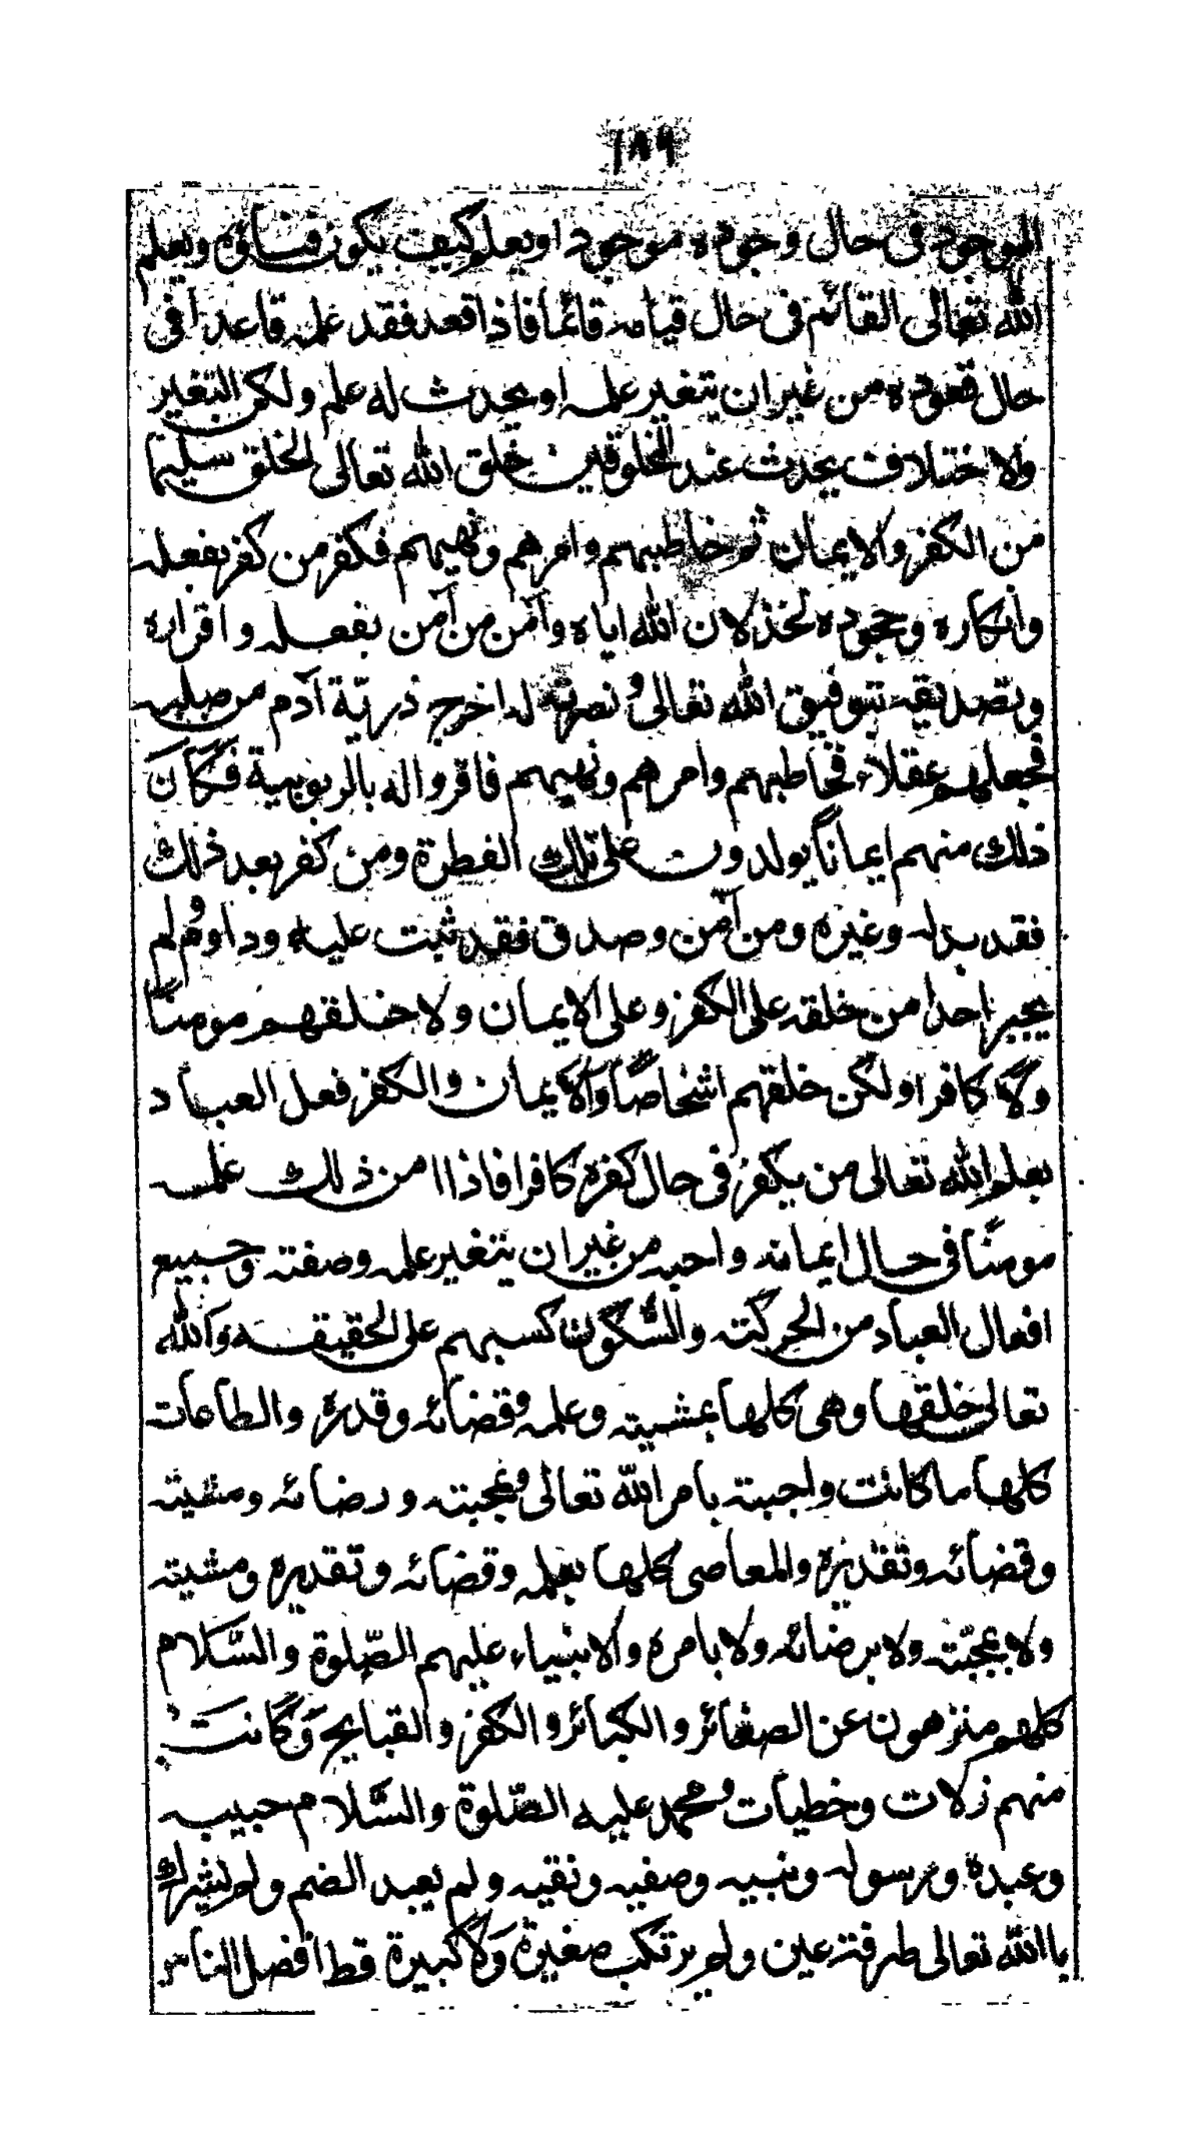 ١٨٩
الموجود فى حال وجوده موجودا ويعلم كيف يكون فناؤه ويعلم
الله تعالى القائم فى حال قيامه قائما فاذا قعد فقد علمه قاعدا فى
حال قعوده من غير ان يتغير علمه او يحدث له علم ولكن التغير
ولاختلاف يحدث عند المخلوقين خلق الله تعالى الخلق سليما
من الكفر والايمان ثم خاطبهم وامرهم ونهيهم فكفر من كفر بفعله
وانكاره وجحوده بخذلان الله اياه وآمن من آمن بفعله واقراره
وتصديقه بتوفيق الله تعالى ونصرته له اخرج ذرية آدم من صلبه
فجعلهم عقلاء فخاطبهم وامرهم ونهيهم فاقروا له بالربوبية فكان
ذلك منهم ايمانا يولدون على تلك الفطرة ومن كفر بعد ذلك
فقد بدله وغيره ومن آمن وصدق فقد ثبت عليه وداوم ولم
يجبر احدا من خلقه على الكفر وعلى الايمان ولا خلقهم مومنا
ولا كافرا ولكن خلقهم اشخاصا والايمان والكفر فعل العباد
يعلم الله تعالى من يكفر فى حال كفره كافرا فاذا امن ذلك علمه
مومنا فى حال ايمانه واحبه من غير ان يتغير علمه وصفته وجميع
افعال العباد من الحركته والسكون كسبهم على الحقيقه والله
تعالى خلقها وهى كلها بمشيته وعلمه وقضائه وقدره والطاعات
كلها ما كانت واجبته بامر الله تعالى وبمحبته ورضائه ومشيته
وقضائه وتقديره والمعاصى كلها بعلمه وقضائه وتقديره ومشيته
ولا بمحبته ولا برضائه ولا بامره والانبياء عليهم الصلوة والسلام
كلهم منزهون عن الصغائر والكبائر والكفر والقبايح وكانت
منهم زلات وخطيات ومحمد عليه الصلوة والسلام حبيبه
وعبده ورسوله ونبيه وصفيه ونقيه ولم يعبد الصنم ولم يشرك
باالله تعالى طرفته عين ولم يرتكب صغيرة ولا كبيرة قط افضل الناس